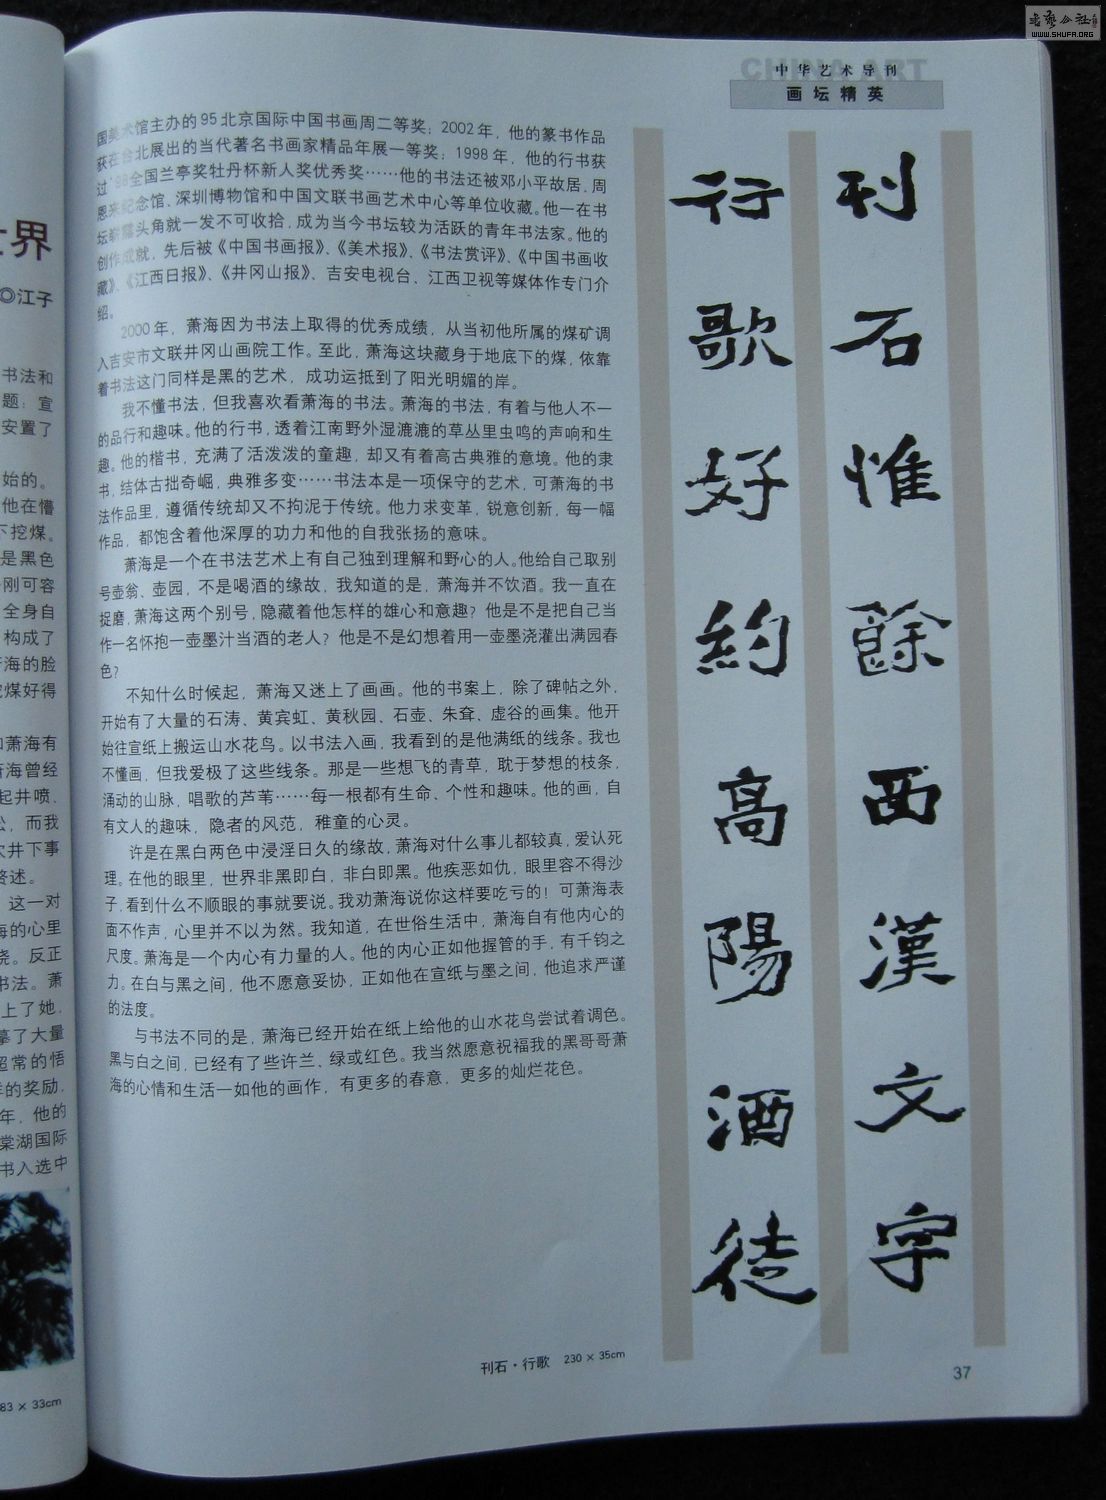 书艺公社
WWW.SHUFA.ORG
CHINA ART
中华艺术导刊
画坛精英
世界
◎江子
书法和
题：宣
安置了
始的。
他在懵
下挖煤。
是黑色
刚可容
全身自
构成了
海的脸
挖煤好得
和萧海有
萧海曾经
起井喷，
松，而我
次井下事
赘述。
这一对
海的心里
烧。反正
书法。萧
上了她，
摹了大量
超常的悟
样的奖励，
年，他的
棠湖国际
书入选中
83 × 33cm
国美术馆主办的95北京国际中国书画周二等奖；2002年，他的篆书作品
获在台北展出的当代著名书画家精品年展一等奖；1998年，他的行书获
过'98全国兰亭奖牡丹杯新人奖优秀奖……他的书法还被邓小平故居、周
恩来纪念馆、深圳博物馆和中国文联书画艺术中心等单位收藏。他一在书
坛崭露头角就一发不可收拾，成为当今书坛较为活跃的青年书法家。他的
创作成就，先后被《中国书画报》、《美术报》、《书法赏评》、《中国书画收
藏》、《江西日报》、《井冈山报》、吉安电视台、江西卫视等媒体作专门介
绍。
2000年，萧海因为书法上取得的优秀成绩，从当初他所属的煤矿调
入吉安市文联井冈山画院工作。至此，萧海这块藏身于地底下的煤，依靠
着书法这门同样是黑的艺术，成功运抵到了阳光明媚的岸。
我不懂书法，但我喜欢看萧海的书法。萧海的书法，有着与他人不一
的品行和趣味。他的行书，透着江南野外湿漉漉的草丛里虫鸣的声响和生
趣。他的楷书，充满了活泼泼的童趣，却又有着高古典雅的意境。他的隶
书，结体古拙奇崛，典雅多变……书法本是一项保守的艺术，可萧海的书
法作品里，遵循传统却又不拘泥于传统。他力求变革，锐意创新，每一幅
作品，都饱含着他深厚的功力和他的自我张扬的意味。
萧海是一个在书法艺术上有自己独到理解和野心的人。他给自己取别
号壶翁、壶园，不是喝酒的缘故，我知道的是，萧海并不饮酒。我一直在
捉磨，萧海这两个别号，隐藏着他怎样的雄心和意趣？他是不是把自己当
作一名怀抱一壶墨汁当酒的老人？他是不是幻想着用一壶墨浇灌出满园春
色？
不知什么时候起，萧海又迷上了画画。他的书案上，除了碑帖之外，
开始有了大量的石涛、黄宾虹、黄秋园、石壶、朱耷、虚谷的画集。他开
始往宣纸上搬运山水花鸟。以书法入画，我看到的是他满纸的线条。我也
不懂画，但我爱极了这些线条。那是一些想飞的青草，耽于梦想的枝条，
涌动的山脉，唱歌的芦苇……每一根都有生命、个性和趣味。他的画，自
有文人的趣味，隐者的风范，稚童的心灵。
许是在黑白两色中浸淫日久的缘故，萧海对什么事儿都较真，爱认死
理。在他的眼里，世界非黑即白，非白即黑。他疾恶如仇，眼里容不得沙
子，看到什么不顺眼的事就要说。我劝萧海说你这样要吃亏的！可萧海表
面不作声，心里并不以为然。我知道，在世俗生活中，萧海自有他内心的
尺度。萧海是一个内心有力量的人。他的内心正如他握管的手，有千钧之
力。在白与黑之间，他不愿意妥协，正如他在宣纸与墨之间，他追求严谨
的法度。
与书法不同的是，萧海已经开始在纸上给他的山水花鸟尝试着调色。
黑与白之间，已经有了些许兰、绿或红色。我当然愿意祝福我的黑哥哥萧
海的心情和生活一如他的画作，有更多的春意，更多的灿烂花色。
刊石惟餘西漢文字
行歌好約高陽酒徒
刊石·行歌 230 × 35cm
37